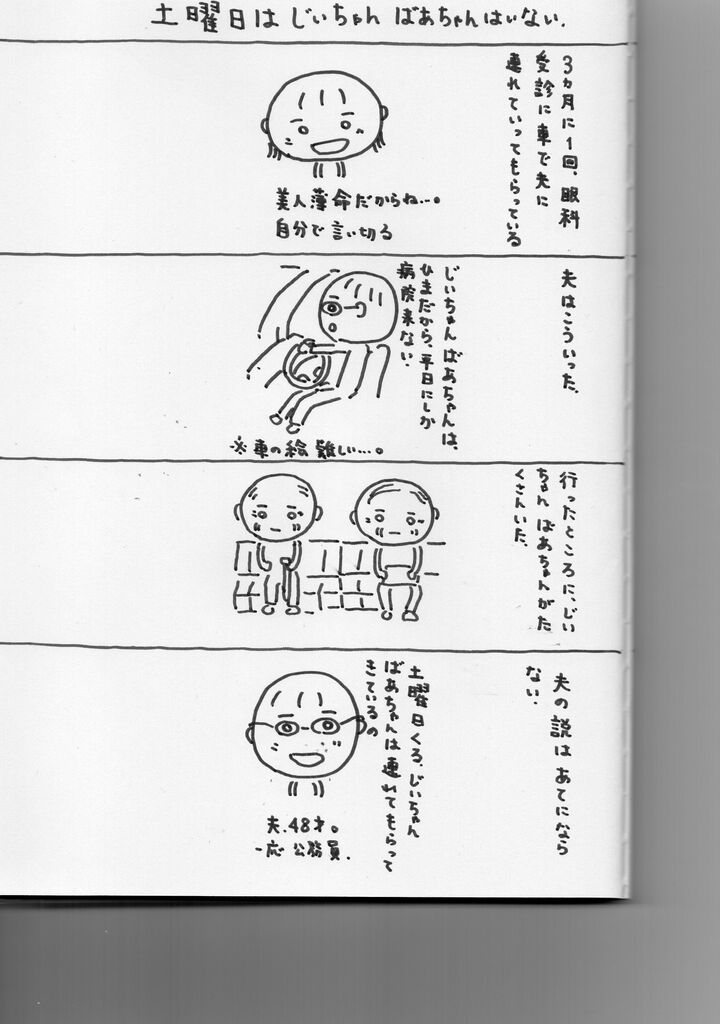 土曜日はじぃちゃんばあちゃんはいない.
3カ月に1回、眼科
受診に車で夫に
連れていってもらっている
美人薄命だからね…。
自分で言い切る
夫はこういった.
じいちゃんばあちゃんは、
ひまだから、平日にしか
病院来ない.
※車の絵難しい…。
行ったところに、じい
ちゃんばあちゃんがた
くさんいた.
夫の説はあてになら
ない.
土曜日くる、じいちゃん
ばあちゃんは連れてもらって
きているの
夫.48才。
一応公務員.